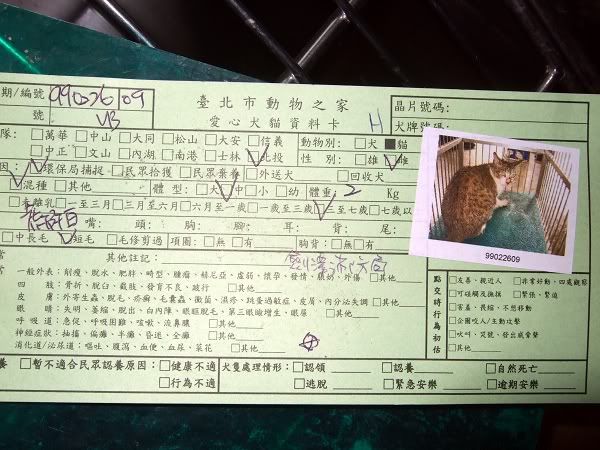 期/編號 990226 09 臺北市動物之家 晶片號碼:
號 VB 愛心犬貓資料卡 H 犬牌號碼:
隊: □萬華 □中山 □大同 □松山 □大安 □信義 動物別: □犬 ■貓
□中正 □文山 □內湖 □南港 □士林 □北投 性 別: □雄 □雌
因: □環保局捕捉 □民眾拾獲 □民眾棄養 □外送犬 □回收犬
□混種 □其他 體 型: □大 □中 □小 □幼 體重: 2 Kg
□未離乳 □一至三月 □三月至六月 □六月至一歲 □一歲至三歲 □三至七歲 □七歲以
嘴: 頭: 胸: 腳: 耳: 背: 尾:
□中長毛 □短毛 □毛修剪過 項圈: □無 □有 胸背: □無 □有
99022609
其他註記:
一般外表: 削瘦、脫水、肥胖、畸型、腫瘤、赫尼亞、虛弱、懷孕、發情、腹奶、外傷 □其他
四 肢: 骨折、脫臼、截肢、發育不良、跛行 □其他
皮 膚: 外寄生蟲、脫毛、疥癬、毛囊蟲、黴菌、濕疹、跳蚤過敏症、皮屑、內分泌失調 □其他
眼 睛: 失明、萎縮、脫出、白內障、眼瞼脫毛、第三眼瞼增生、眼屎 □其他
呼 吸 道: 急促、呼吸困難、喘嗽、流鼻膿 □其他
神經症狀: 抽搐、偏癱、半癱、昏迷、全癱 □其他
消化道/泌尿道: 嘔吐、腹瀉、血便、血尿、菜花 □其他
點交時行為初估
□友善、親近人 □非常好動、四處觀察
□可碰觸及撫摸 □緊張、緊迫
□害羞、畏縮、不想移動
□企圖咬人/主動攻擊
□吠叫、哭號、發出威脅聲
□其他
養 □暫不適合民眾認養原因: □健康不適 犬隻處理情形: □認領 □認養 □自然死亡
□行為不適 □逃脫 □緊急安樂 □逾期安樂